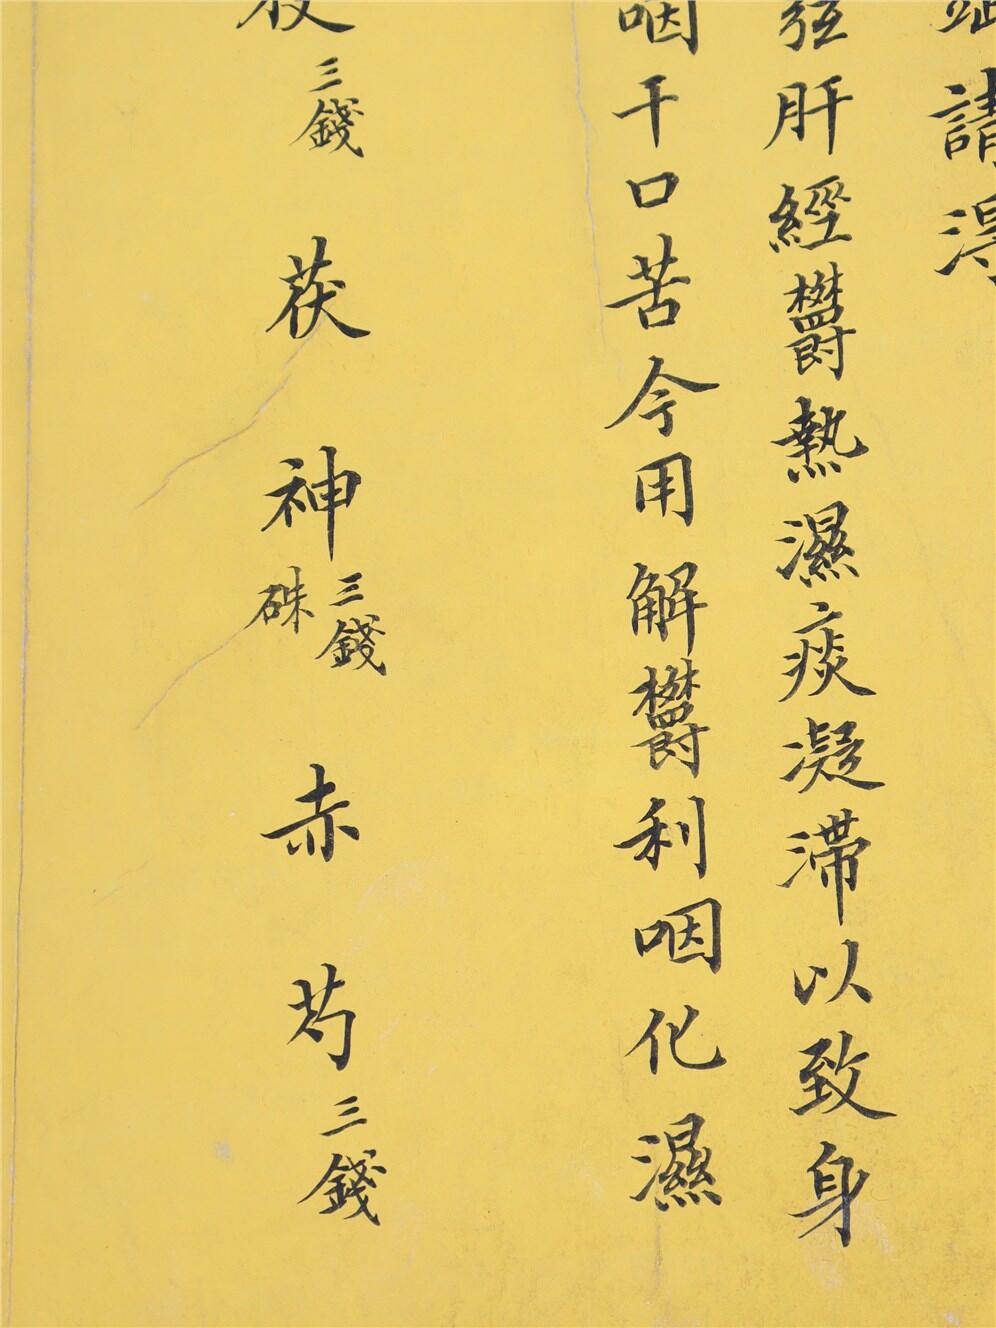 請得
弦肝經欝熱濕痰凝滯以致身
咽干口苦今用解欝利咽化濕
三錢 茯神三錢硃 赤芍三錢